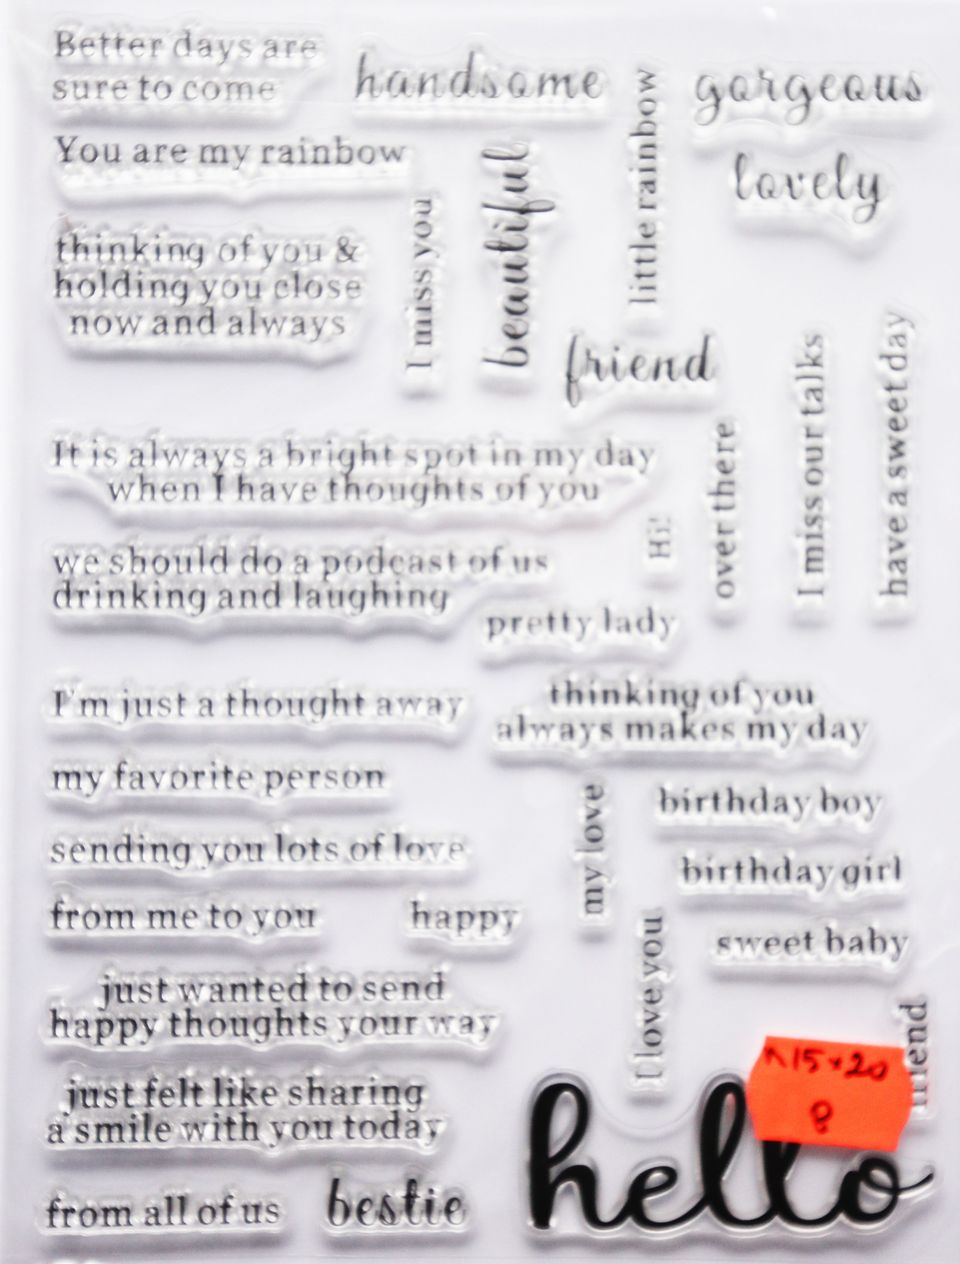 Better days are
sure to come
handsome
gorgeous
little rainbow
You are my rainbow
beautiful
lovely
I miss you
thinking of you &
holding you close
now and always
friend
I miss our talks
have a sweet day
It is always a bright spot in my day
when I have thoughts of you
over there
Hi!
we should do a podcast of us
drinking and laughing
pretty lady
I'm just a thought away
thinking of you
always makes my day
my favorite person
my love
birthday boy
sending you lots of love
birthday girl
from me to you
happy
I love you
sweet baby
just wanted to send
happy thoughts your way
friend
15×20
8
just felt like sharing
a smile with you today
hello
from all of us
bestie